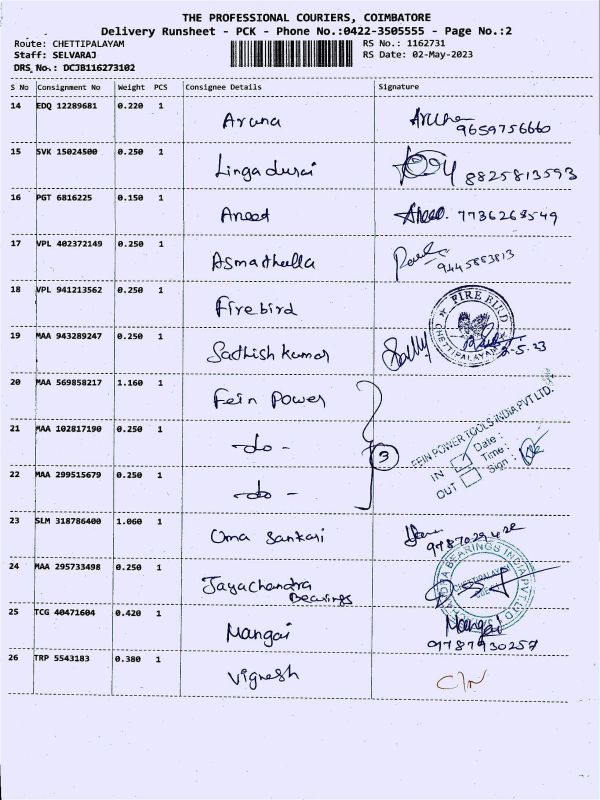 THE PROFESSIONAL COURIERS, COIMBATORE
Delivery Runsheet - PCK - Phone No.:0422-3505555 - Page No.:2
Route: CHETTIPALAYAM RS No.: 1162731
Staff: SELVARAJ RS Date: 02-May-2023
DRS No.: DCJB116273102
S No Consignment No Weight PCS Consignee Details Signature
14 EDQ 12289681 0.220 1 Aruna Aruna
9659756660
15 SVK 15024500 0.250 1 Lingadurai 8825813593
16 PGT 6816225 0.150 1 Aneed 7736268549
17 VPL 402372149 0.250 1 Asmathulla 9445883813
18 VPL 941213562 0.250 1 Firebird FIRE BIRD
CHETTIPALAYAM
19 MAA 943289247 0.250 1 Sathish kumar 2-5-23
20 MAA 569858217 1.160 1 Fein Power
FEIN POWER TOOLS INDIA PVT LTD.
21 MAA 102817190 0.250 1 - do - 3
IN Date :
Time :
OUT Sign :
22 MAA 299515679 0.250 1 - do -
23 SLM 318786400 1.060 1 Uma Sankari
24 MAA 295733498 0.250 1 Jayachandra
Bearings
BEARINGS INDIA PVT LTD
CHETTIPALAYAM
25 TCG 40471604 0.420 1 Mangai Mangai
9787930257
26 TRP 5543183 0.380 1 Vignesh C/N